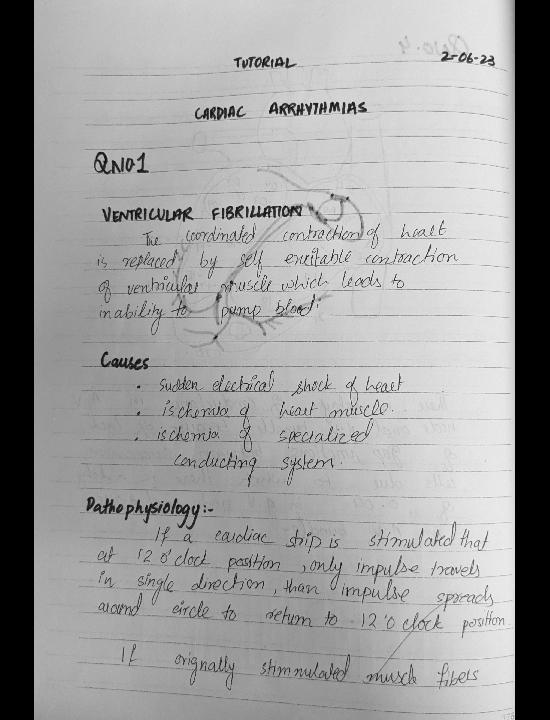 TUTORIAL
2-06-23
CARDIAC ARRHYTHMIAS
QNO1
VENTRICULAR FIBRILLATION
The coordinated contraction of heart
is replaced by self excitable contraction
of ventricular muscle which leads to
inability to pump blood.
Causes
• Sudden electrical shock of heart
• ischemia of heart muscle.
• ischemia of specialized
conducting system.
Pathophysiology:-
If a cardiac strip is stimulated that
at 12 o'clock position, only impulse travels
in single direction, than impulse spreads
around circle to return to 12 'o clock position
If orignally stimnulated muscle fibers